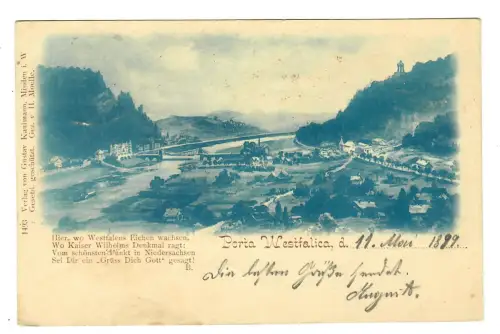 14/93 Verlag von Gustav Kaatzmann, Minden i. W.
Gesetzl. geschützt. Gez. v. H. Moelle.
Hier, wo Westfalens Eichen wachsen,
Wo Kaiser Wilhelms Denkmal ragt:
Vom schönsten Punkt in Niedersachsen
Sei Dir ein „Grüss Dich Gott“ gesagt!
B.
Porta Westfalica, d. 11. Mai 1899.
Die besten Grüße sendet